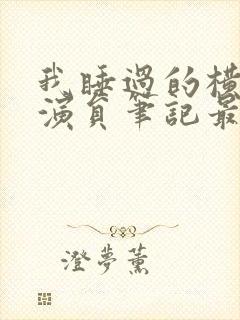 我睡過的横
演員筆記最
澄夢薰